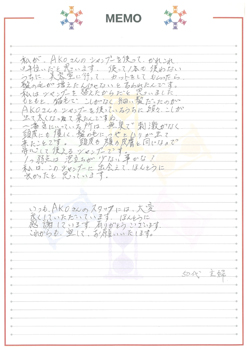 MEMO
私が、AKOさんのシャンプーを使って、かれこれ
1年位だと思います。使って1本も使わない
うちに、美容室に行って、カットをしてもらったら
髪の毛が増えたんじゃないと言われたんです。
私はシャンプーを替えたからだと思いました。
もともと、猫毛で、こしがなく、細い髪だったのが
AKOさんのシャンプーを使っているうちに、段々こしが
出て太くなって来たんですね。
一番気にいっている所は、無臭で刺激がなく
頭皮にも優しく髪の毛に、つやともりが出て
来たことです。頭皮も顔の皮膚も同じなので
安心して使えるシャンプーです。
私は、このシャンプーに出会えて、ほんとうに
良かったと思っています。
いつも、AKOさんのスタッフには、大変
良くしていただいています。ほんとうに
感謝しています。ありがとうございます。
これからも、宜しくお願いいたします。